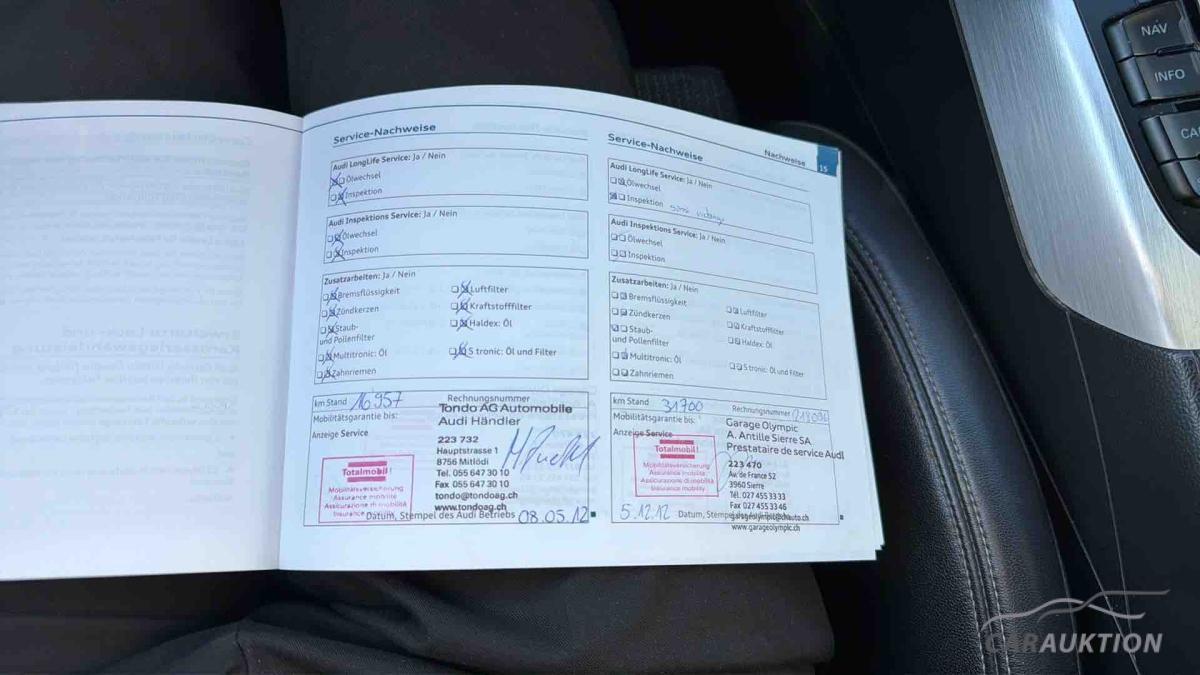 Service-Nachweise
Audi LongLife Service: Ja / Nein
Ölwechsel
Inspektion
Audi Inspektions Service: Ja / Nein
Ölwechsel
Inspektion
Zusatzarbeiten: Ja / Nein
Bremsflüssigkeit
Luftfilter
Zündkerzen
Kraftstofffilter
Staub-
und Pollenfilter
Haldex: Öl
Multitronic: Öl
S tronic: Öl und Filter
Zahnriemen
km Stand 16957
Rechnungsnummer
Mobilitätsgarantie bis:
Tondo AG Automobile
Audi Händler
Anzeige Service
223 732
Hauptstrasse 1
8756 Mitlödi
Tel. 055 647 30 10
Fax 055 647 30 10
tondo@tondoag.ch
www.tondoag.ch
Totalmobil!
Mobilitätsversicherung
Assurance mobilité
Assicurazione di mobilità
Insurance
Datum, Stempel des Audi Betriebs 08.05.12
Service-Nachweise
Nachweise
15
Audi LongLife Service: Ja / Nein
Ölwechsel
Inspektion sans vidange
Audi Inspektions Service: Ja / Nein
Ölwechsel
Inspektion
Zusatzarbeiten: Ja / Nein
Bremsflüssigkeit
Luftfilter
Zündkerzen
Kraftstofffilter
Staub-
und Pollenfilter
Haldex: Öl
Multitronic: Öl
S tronic: Öl und Filter
Zahnriemen
km Stand 31700
Rechnungsnummer
Mobilitätsgarantie bis:
Garage Olympic
A. Antille Sierre SA
Anzeige Service
Prestataire de service Audi
223 470
Av. de France 52
3960 Sierre
Tél. 027 455 33 33
Fax 027 455 33 46
garageolympic@chauto.ch
www.garageolympic.ch
Totalmobil!
Mobilitätsversicherung
Assurance mobilité
Assicurazione di mobilità
Insurance mobility
5.12.12 Datum, Stempel des Audi
NAV
INFO
CARAUKTION